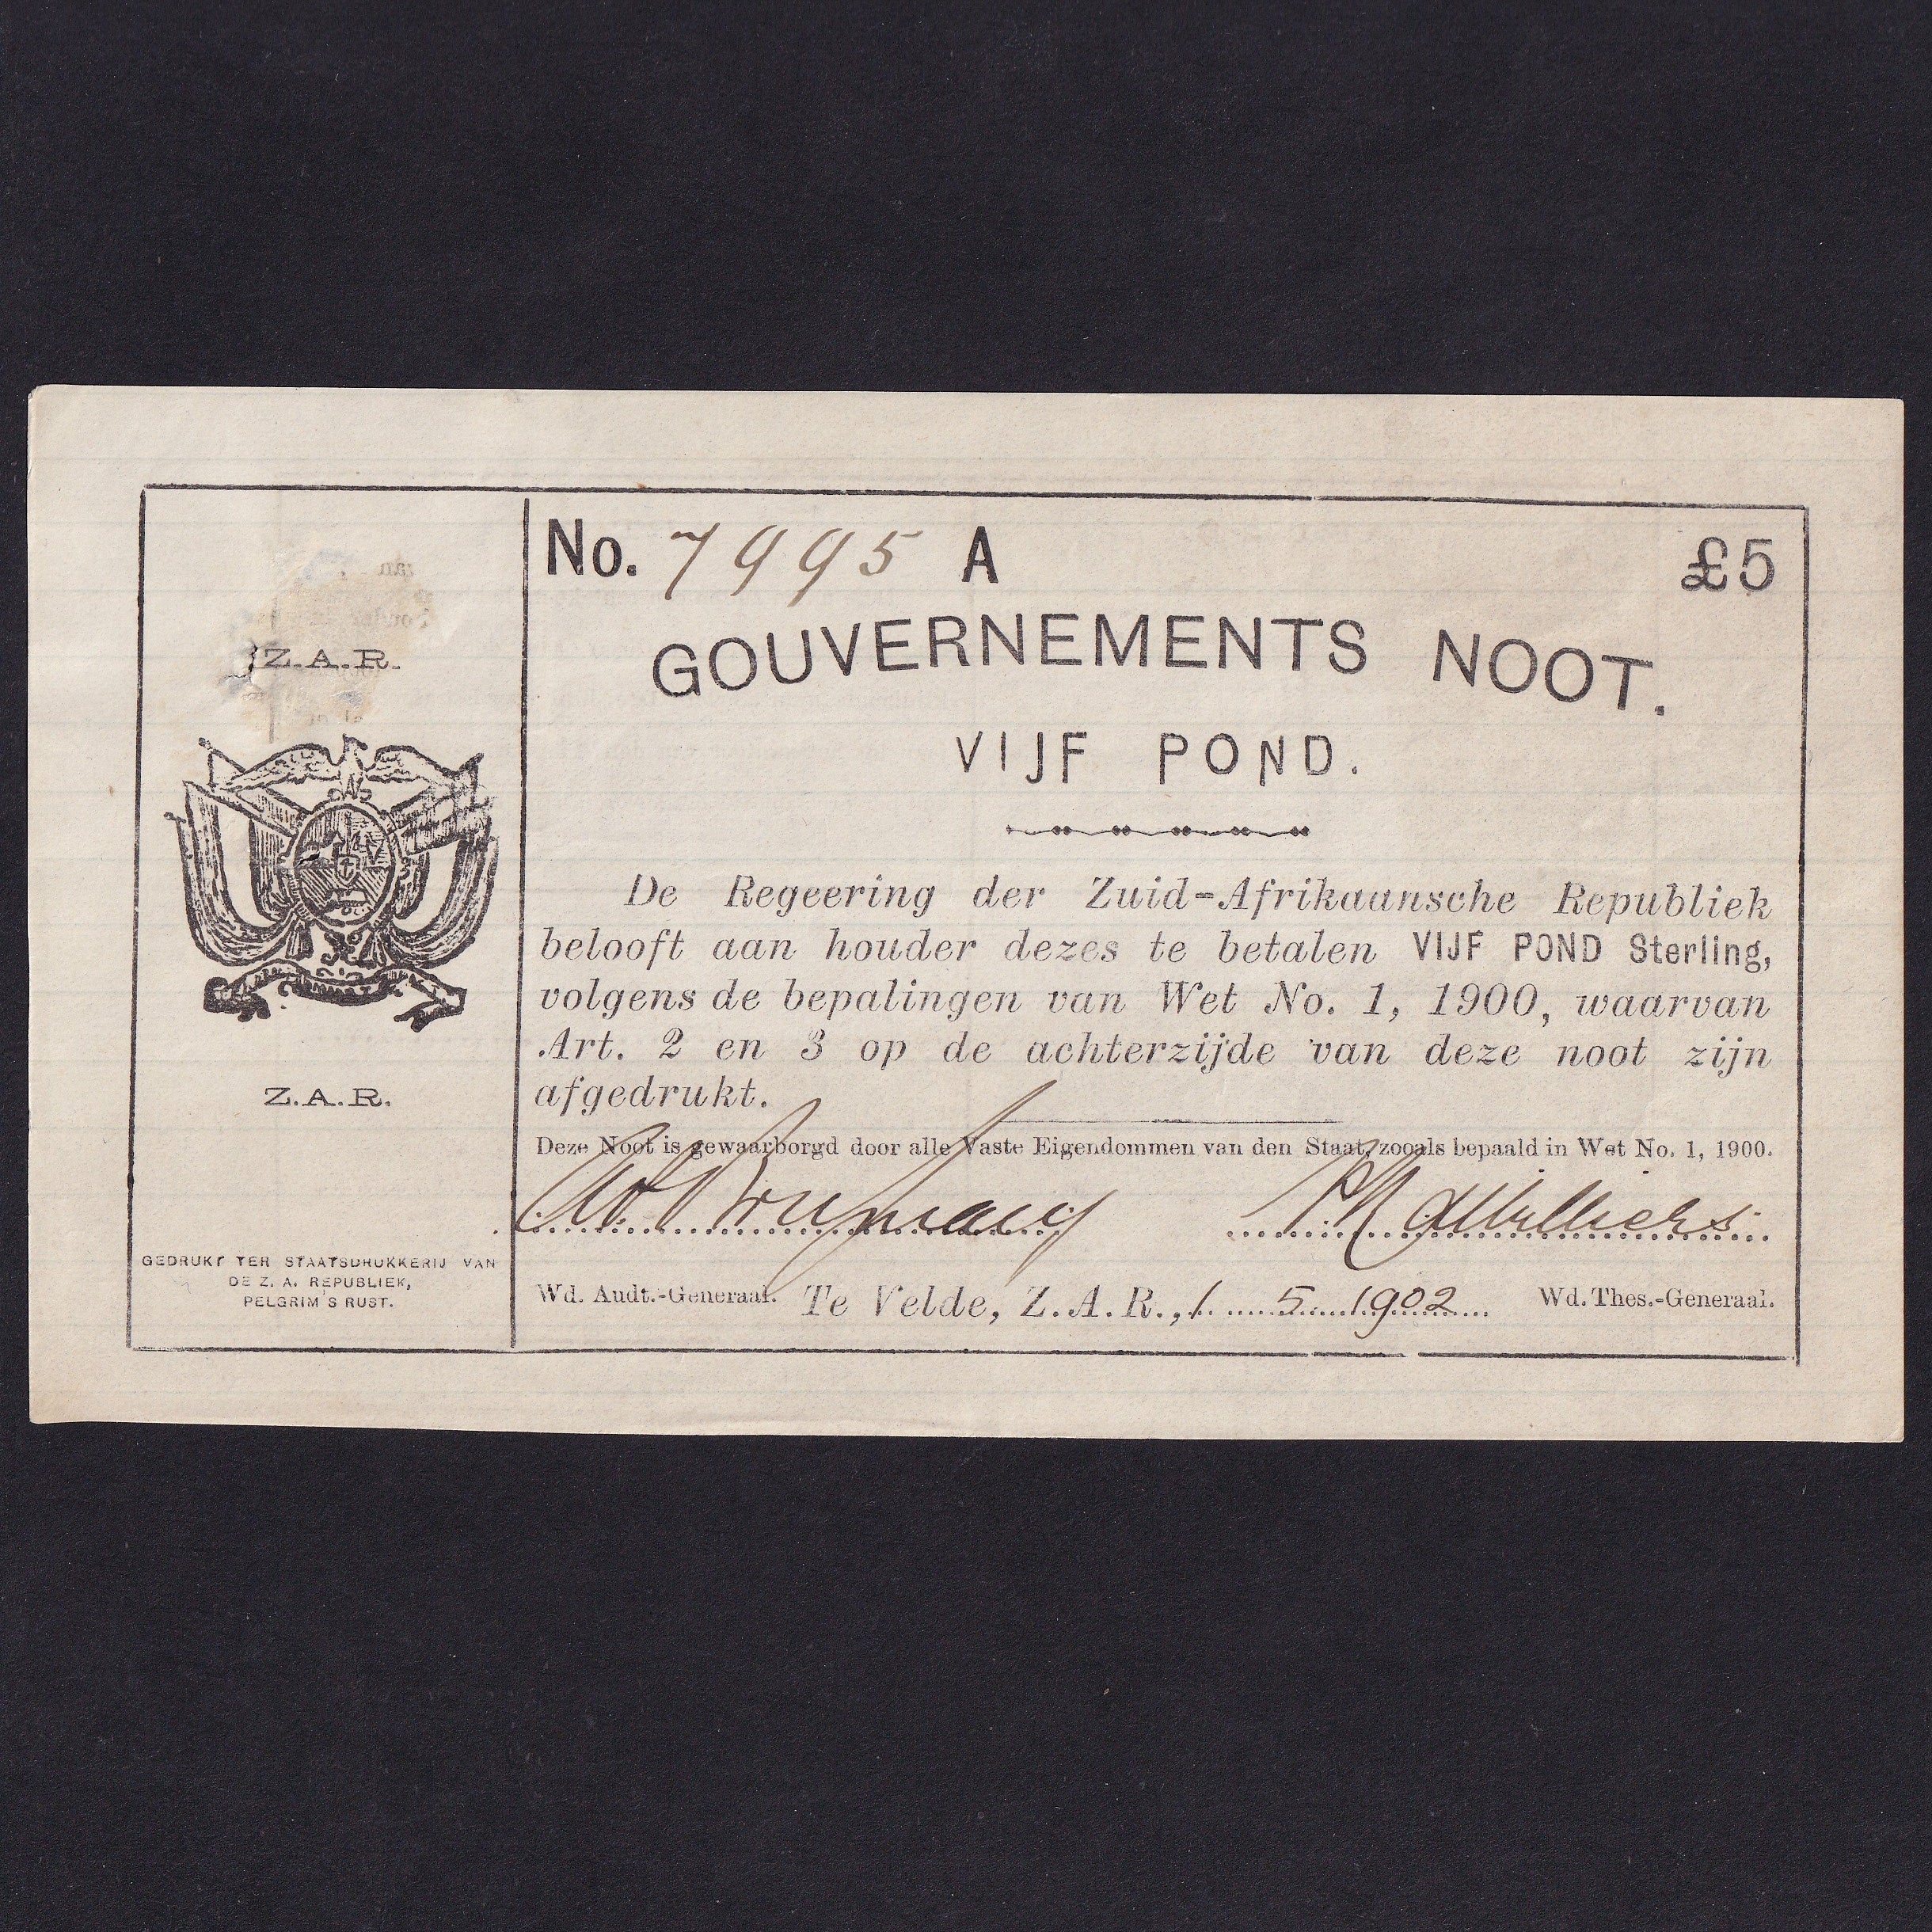 Z.A.R.
Z.A.R.
GEDRUKT TER STAATSDRUKKERIJ VAN
DE Z. A. REPUBLIEK,
PELGRIM'S RUST.
No. 7995 A
£5
GOUVERNEMENTS NOOT.
VIJF POND.
De Regeering der Zuid-Afrikaansche Republiek
belooft aan houder dezes te betalen VIJF POND Sterling,
volgens de bepalingen van Wet No. 1, 1900, waarvan
Art. 2 en 3 op de achterzijde van deze noot zijn
afgedrukt.
Deze Noot is gewaarborgd door alle Vaste Eigendommen van den Staat, zooals bepaald in Wet No. 1, 1900.
Wd. Audt.-Generaal.
Te Velde, Z.A.R., 1 5 1902
Wd. Thes.-Generaal.